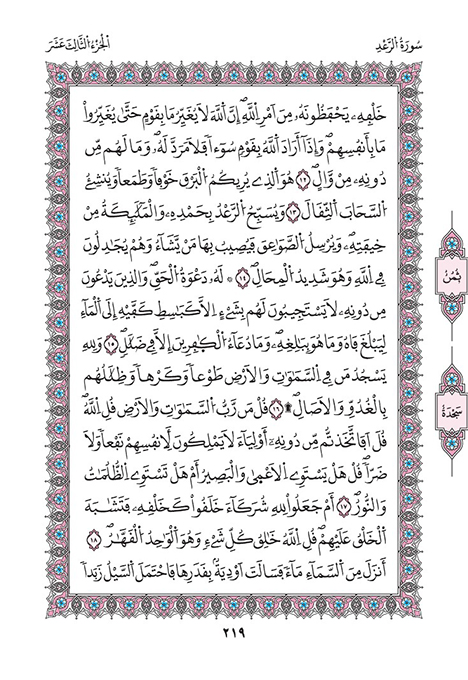 سُورَةُ الرَّعْدِ
الْجُزْءُ الثَّالِثَ عَشَرَ
خَلْفِهِۦ يَحْفَظُونَهُۥ مِنَ اَمْرِ اِ۬للَّهِۖ إِنَّ اَ۬للَّهَ لَا يُغَيِّرُ مَا بِقَوْمٍ حَتَّىٰ يُغَيِّرُواْ
مَا بِأَنفُسِهِمْۖ وَإِذَا أَرَادَ اَ۬للَّهُ بِقَوْمٖ سُوٓءاٗ فَلَا مَرَدَّ لَهُۥۖ وَمَا لَهُم مِّن
دُونِهِۦ مِنْ وَّالٍۖ ١٢ هُوَ اَ۬لذِے يُرِيكُمُ اُ۬لْبَرْقَ خَوْفاٗ وَطَمَعاٗ وَيُنشِۓُ
اُ۬لسَّحَابَ اَ۬لثِّقَالَۖ ١٣ وَيُسَبِّحُ اُ۬لرَّعْدُ بِحَمْدِهِۦ وَالْمَلَٰٓئِكَةُ مِنْ
خِيفَتِهِۦۖ وَيُرْسِلُ اُ۬لصَّوَٰعِقَ فَيُصِيبُ بِهَا مَنْ يَّشَآءُۖ وَهُمْ يُجَٰدِلُونَ
فِے اِ۬للَّهِ وَهُوَ شَدِيدُ اُ۬لْمِحَالِۖ ١٤ ۞ لَهُۥ دَعْوَةُ اُ۬لْحَقِّۖ وَالذِينَ يَدْعُونَ
مِن دُونِهِۦ لَا يَسْتَجِيبُونَ لَهُم بِشَےْءٍ اِلَّا كَبَٰسِطِ كَفَّيْهِ إِلَى اَ۬لْمَآءِ
لِيَبْلُغَ فَاهُ وَمَا هُوَ بِبَٰلِغِهِۦۖ وَمَا دُعَآءُ اُ۬لْكٰ۪فِرِينَ إِلَّا فِے ضَلَٰلٖۖ ١٥ وَلِلهِ
يَسْجُدُ مَن فِے اِ۬لسَّمَٰوَٰتِ وَالَارْضِ طَوْعاٗ وَكَرْهاٗ وَظِلَٰلُهُم
بِالْغُدُوِّ وَالَاصَالِۖ۩ ١٦ قُلْ مَن رَّبُّ اُ۬لسَّمَٰوَٰتِ وَالَارْضِ قُلِ اِ۬للَّهُۖ
قُلَ اَفَاتَّخَذتُّم مِّن دُونِهِۦٓ أَوْلِيَآءَ لَا يَمْلِكُونَ لِأَنفُسِهِمْ نَفْعاٗ وَلَا
ضَرّاٗۖ قُلْ هَلْ يَسْتَوِے اِ۬لَاعْم۪ىٰ وَالْبَصِيرُ أَمْ هَلْ تَسْتَوِے اِ۬لظُّلُمَٰتُ
وَالنُّورُۖ ١٧ أَمْ جَعَلُواْ لِلهِ شُرَكَآءَ خَلَقُواْ كَخَلْقِهِۦ فَتَشَٰبَهَ
اَ۬لْخَلْقُ عَلَيْهِمْۖ قُلِ اِ۬للَّهُ خَٰلِقُ كُلِّ شَےْءٖۖ وَهُوَ اَ۬لْوَٰحِدُ اُ۬لْقَهَّٰرُۖ ١٨
أَنزَلَ مِنَ اَ۬لسَّمَآءِ مَآءٗ فَسَالَتَ اَوْدِيَةُۢ بِقَدَرِهَا فَاحْتَمَلَ اَ۬لسَّيْلُ زَبَداٗ
ثُمُنُ
سَجْدَةٌ
٢١٩